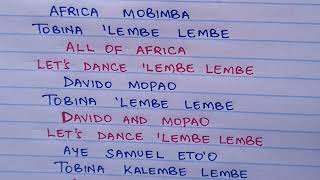 AFRICA MOBIMBA
TOBINA 'LEMBE LEMBE
ALL OF AFRICA
LET'S DANCE 'LEMBE LEMBE
DAVIDO MOPAO
TOBINA 'LEMBE LEMBE
DAVIDO AND MOPAO
LET'S DANCE 'LEMBE LEMBE
AYE SAMUEL ETO'O
TOBINA KALEMBE LEMBE